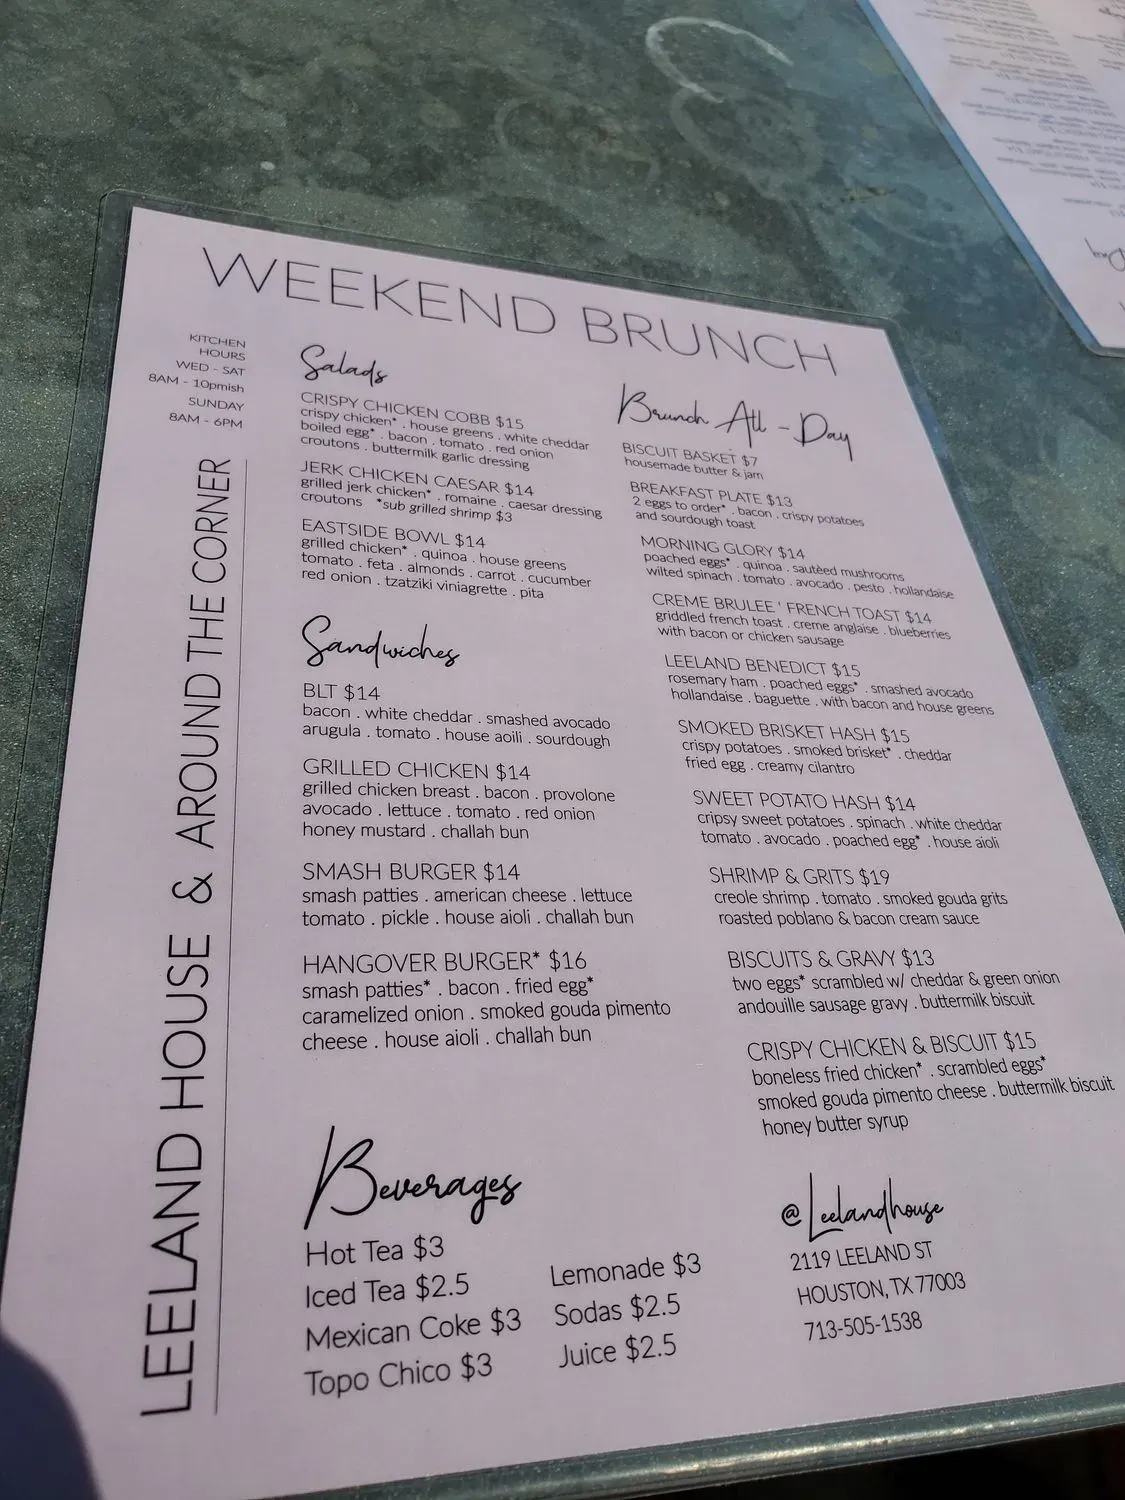 WEEKEND BRUNCH
KITCHEN
HOURS
WED - SAT
8AM - 10pmish
SUNDAY
8AM - 6PM
LEELAND HOUSE & AROUND THE CORNER
Salads
CRISPY CHICKEN COBB $15
crispy chicken* . house greens . white cheddar
boiled egg* . bacon . tomato . red onion
croutons . buttermilk garlic dressing
JERK CHICKEN CAESAR $14
grilled jerk chicken* . romaine . caesar dressing
croutons *sub grilled shrimp $3
EASTSIDE BOWL $14
grilled chicken* . quinoa . house greens
tomato . feta . almonds . carrot . cucumber
red onion . tzatziki viniagrette . pita
Sandwiches
BLT $14
bacon . white cheddar . smashed avocado
arugula . tomato . house aoili . sourdough
GRILLED CHICKEN $14
grilled chicken breast . bacon . provolone
avocado . lettuce . tomato . red onion
honey mustard . challah bun
SMASH BURGER $14
smash patties . american cheese . lettuce
tomato . pickle . house aioli . challah bun
HANGOVER BURGER* $16
smash patties* . bacon . fried egg*
caramelized onion . smoked gouda pimento
cheese . house aioli . challah bun
Brunch All - Day
BISCUIT BASKET $7
housemade butter & jam
BREAKFAST PLATE $13
2 eggs to order* . bacon . crispy potatoes
and sourdough toast
MORNING GLORY $14
poached eggs* . quinoa . sautèed mushrooms
wilted spinach . tomato . avocado . pesto . hollandaise
CREME BRULEE ' FRENCH TOAST $14
griddled french toast . creme anglaise . blueberries
with bacon or chicken sausage
LEELAND BENEDICT $15
rosemary ham . poached eggs* . smashed avocado
hollandaise . baguette . with bacon and house greens
SMOKED BRISKET HASH $15
crispy potatoes . smoked brisket* . cheddar
fried egg . creamy cilantro
SWEET POTATO HASH $14
cripsy sweet potatoes . spinach . white cheddar
tomato . avocado . poached egg* . house aioli
SHRIMP & GRITS $19
creole shrimp . tomato . smoked gouda grits
roasted poblano & bacon cream sauce
BISCUITS & GRAVY $13
two eggs* scrambled w/ cheddar & green onion
andouille sausage gravy . buttermilk biscuit
CRISPY CHICKEN & BISCUIT $15
boneless fried chicken* . scrambled eggs*
smoked gouda pimento cheese . buttermilk biscuit
honey butter syrup
Beverages
Hot Tea $3
Iced Tea $2.5
Mexican Coke $3
Topo Chico $3
Lemonade $3
Sodas $2.5
Juice $2.5
@Leelandhouse
2119 LEELAND ST
HOUSTON, TX 77003
713-505-1538